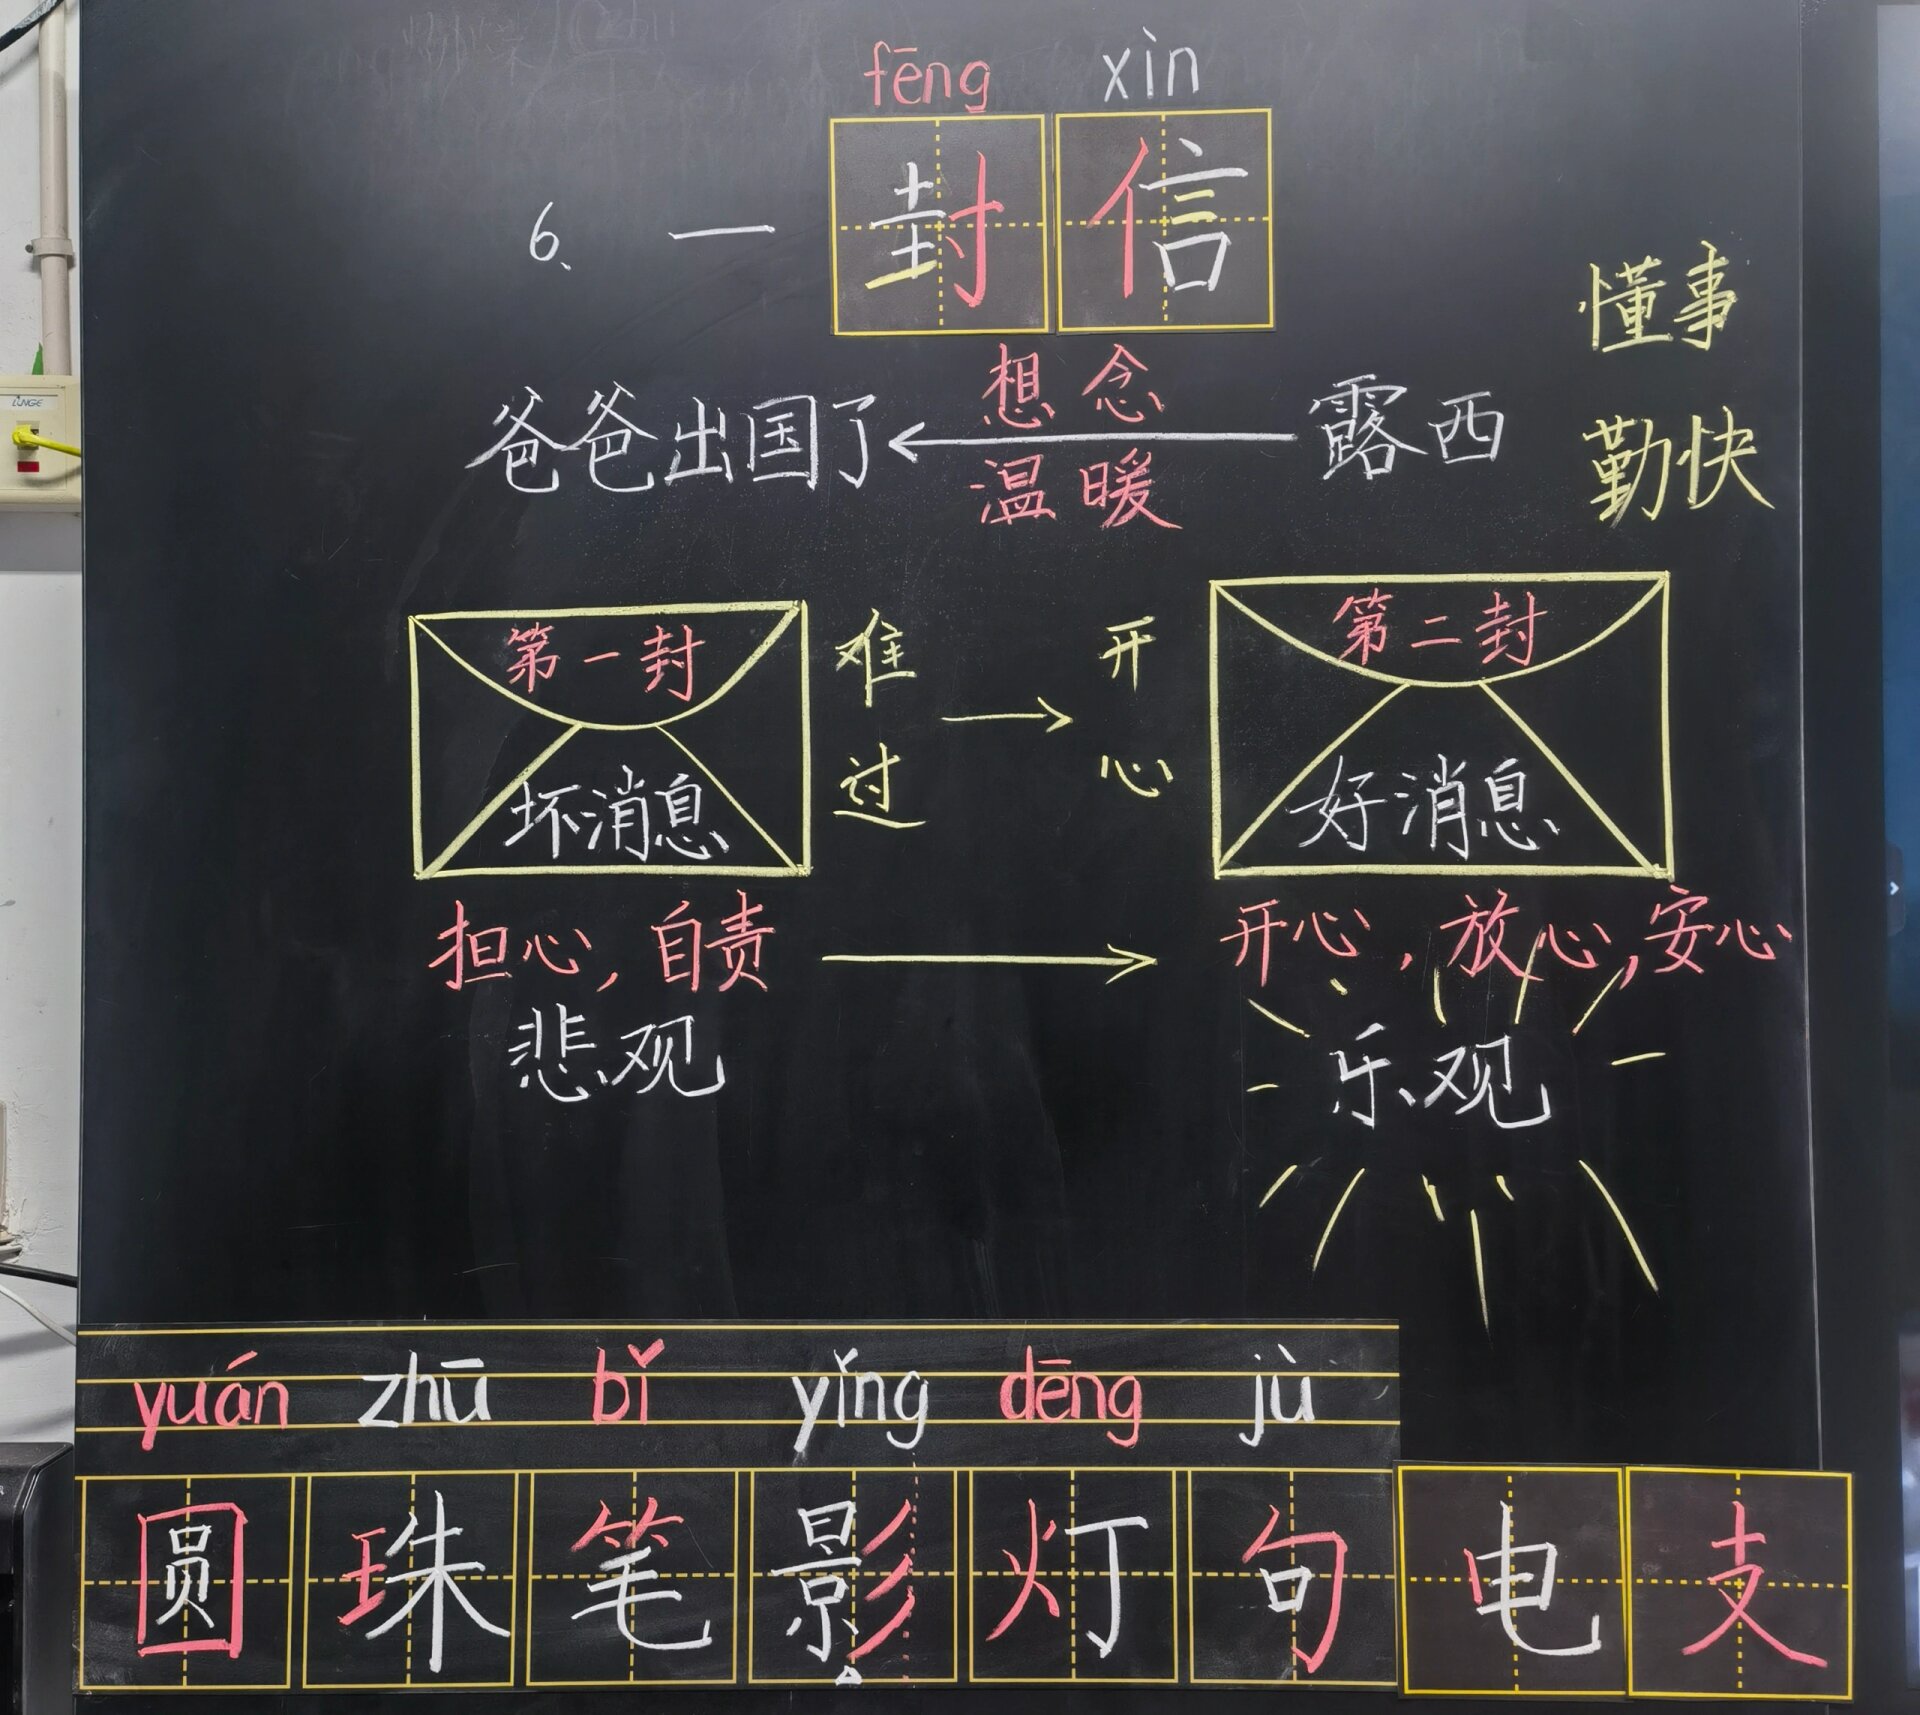 fēng xìn
6、一封信
懂事
想念
爸爸出国了 露西
温暖
勤快
第一封 难过 开心 第二封
坏消息 好消息
担心,自责 开心,放心,安心
悲观 乐观
yuán zhū bǐ yǐng dēng jù
圆 珠 笔 影 灯 句 电 支